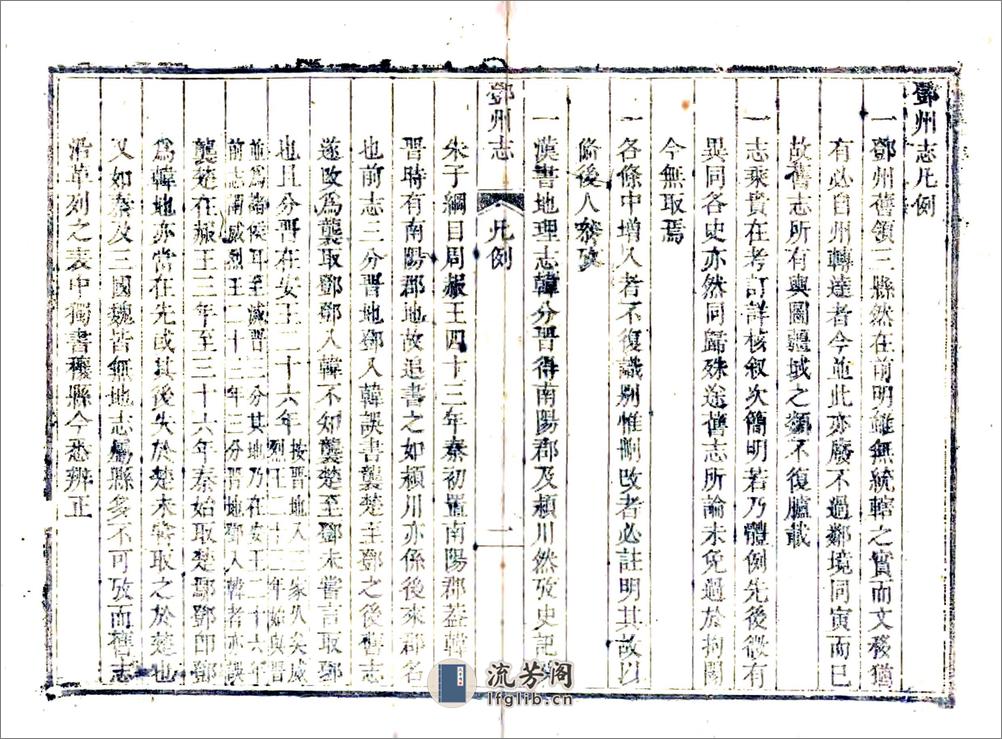 鄧州志凡例
一鄧州舊領三縣然在前明雖無統轄之實而文移猶
有必自州轉達者今並此亦廢不過鄰境同寅而已
故舊志所有輿圖疆域之類不復臚載
一志乘貴在考訂詳核叙次簡明若乃體例先後微有
異同各史亦然同歸殊途舊志所論未免過於拘閡
今無取焉
一各條中增入者不復識別惟刪改者必註明其故以
俻後人叅攷
一漢書地理志韓分晋得南陽郡及潁川然攷史記
鄧州志
凡例
一
朱子綱目周赧王四十三年秦初置南陽郡葢韓
晋時有南陽郡地故追書之如潁川亦係後來郡名
也前志三分晋地鄧入韓誤書襲楚主鄧之後舊志
遂改爲襲取鄧鄧入韓不知襲楚至鄧未嘗言取鄧
也且分晋在安王二十六年
按晋地入三家久矣威
烈王二十三年始與晋
並爲諸侯耳至滅晋三分其地乃在安王二十六年
前志謂威烈王二十三年三分晋地鄧入韓者亦誤
襲楚在赧王三年至三十六年秦始取楚鄢鄧卽鄧
爲韓地亦當在先或其後失於楚未嘗取之於楚也
又如秦及三國魏皆無地志屬縣多不可攷而舊志
沿革列之表中獨書穰縣今悉辨正
流芳阁
lfglib.cn